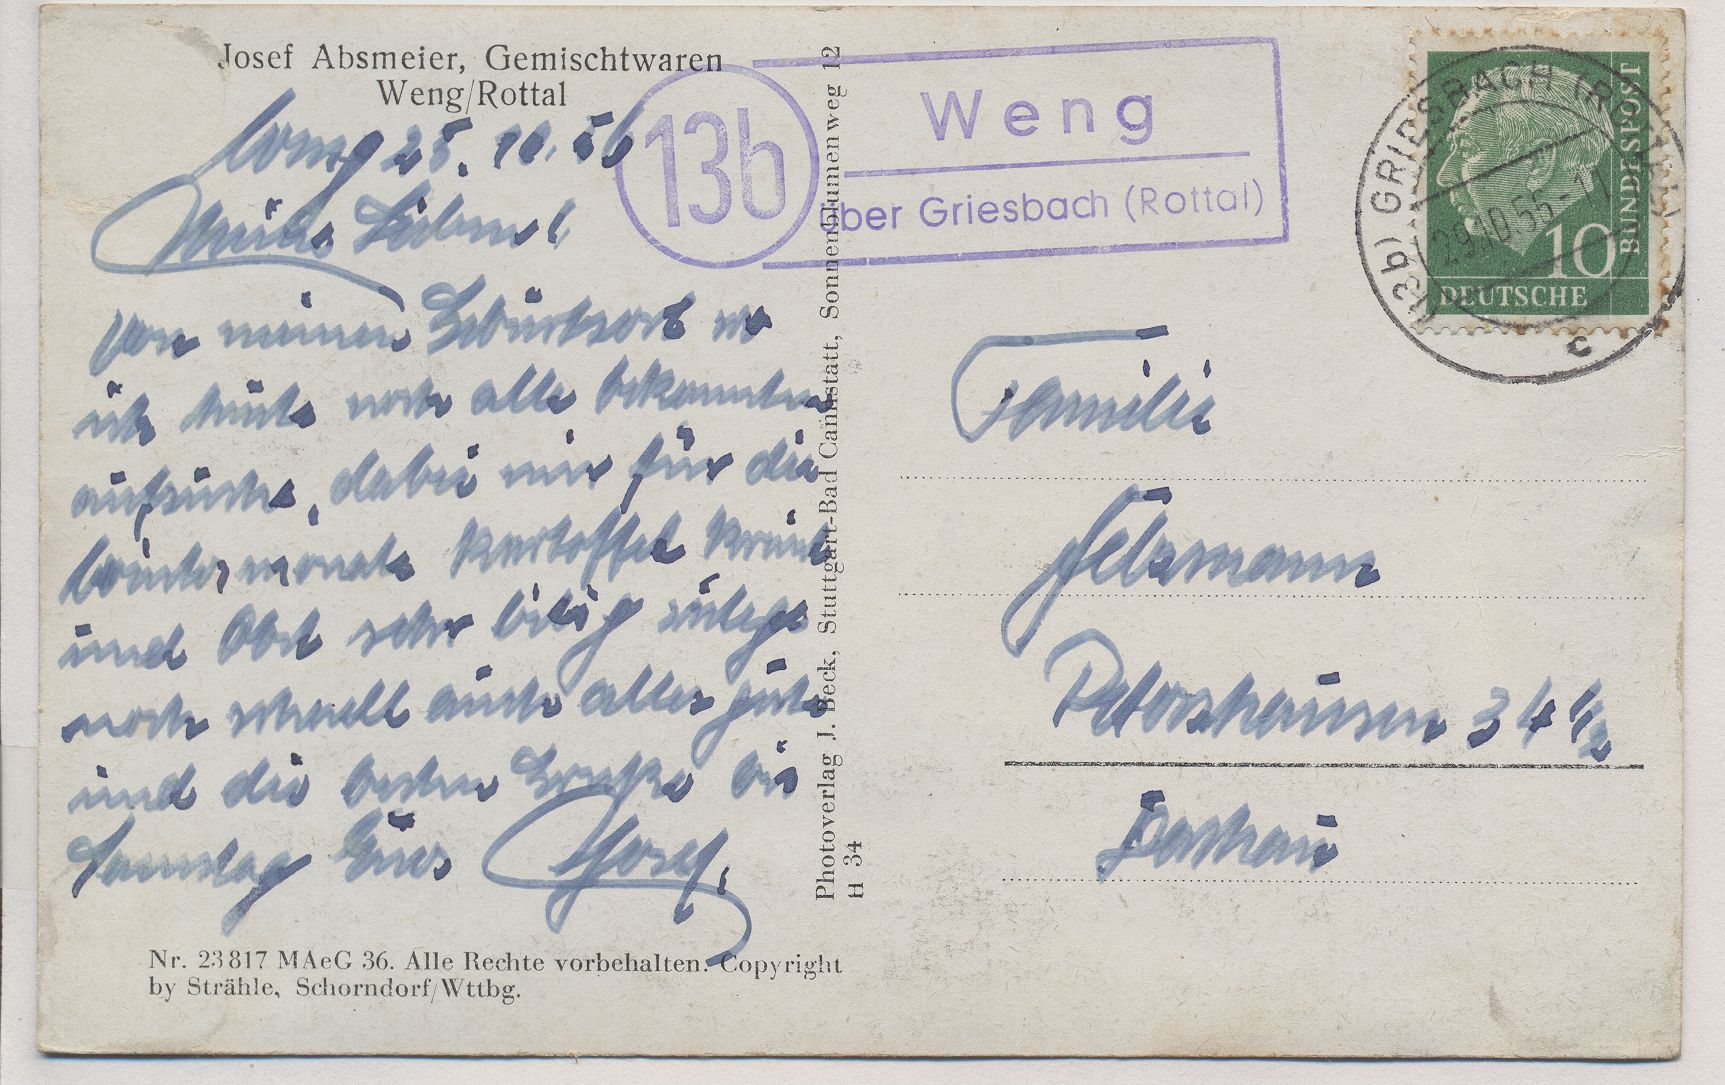 Josef Absmeier, Gemischtwaren
Weng/Rottal
Weng 25. 10. 56
Meine Lieben!
Von meinen Geburtsort wo
ich heute noch alle bekannten
aufsuche, dabei mir für die
Wintermonate Kartoffel Kraut
und Obst sehr billig zulege
noch schnell auch alles gute
und die besten Grüße bis
Samstag Euer Josef.
Nr. 23817 MAeG 36. Alle Rechte vorbehalten. Copyright
by Strähle, Schorndorf/Wttbg.
Photoverlag J. Beck, Stuttgart-Bad Cannstatt, Sonnenblumenweg 12
H 34
13b
Weng
über Griesbach (Rottal)
(13b) GRIESBACH (ROTTAL)
29.10.56-11
c
10
DEUTSCHE
BUNDESPOST
Familie
Petershausen 34 1/2
Dachau